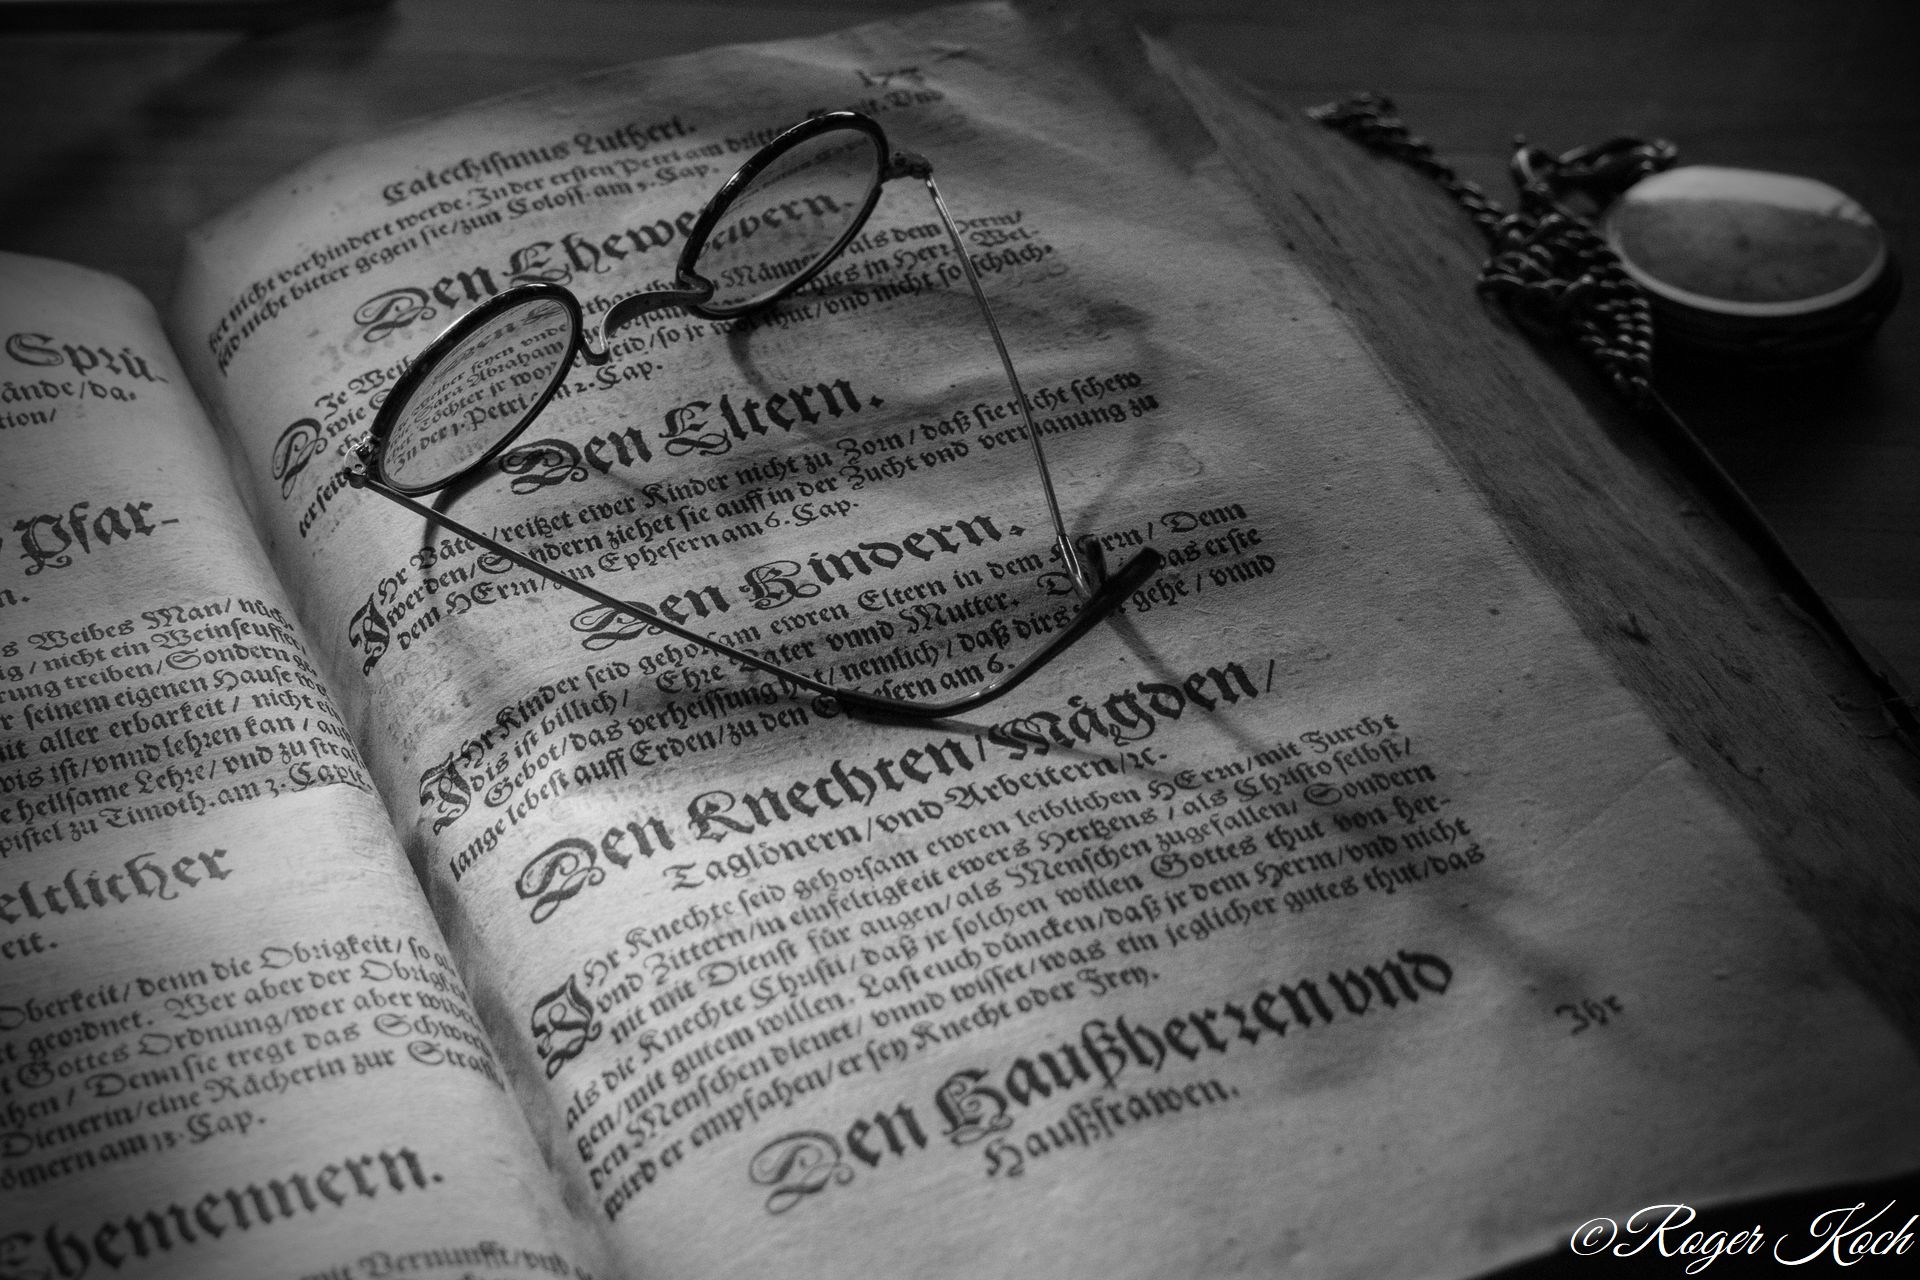 Sprü-
ände/da.
tion/
Pfar-
n.
s Weibes Man/
ig/nicht ein Weinseuffer
rung treiben/Sondern
r seinem eigenen Hause
it aller erbarkeit/nicht
wis ist/vnnd lehren kan/
e heilsame Lehre/vnd zu
pistel zu Timoth. am 3. Capit.
eltlicher
eit.
Oberkeit/denn die Obrigkeit/so
t geordnet. Wer aber der
t Gottes Ordnung/wer aber
hen/Denn sie tregt das
Dienerin/eine Rächerin zur
ömern am 13. Cap.
Ehemennern.
mit Vernunfft/vnd
Catechismus Lutheri.
nicht verhindert werde. In der ersten Petri am dritten Vnd
seid nicht bitter gegen sie/zum Coloss. am 3. Cap.
Den Eheweibern.
Je Weiber als dem Herrn/
wie Sara Abraham Herr
Töchter jr wol thut/vnd nicht so schüch-
ter seid. In der 1. Petri am 2. Cap.
Den Eltern.
IHr Väter/reitzet ewer Kinder nicht zu Zorn/daß sie nicht schew
werden/Sondern ziehet sie auff in der Zucht vnd vermanung zu
dem HErrn/am Ephesern am 6. Cap.
Den Kindern.
IHr Kinder seid gehorsam ewren Eltern in dem HErrn/Denn
dis ist billich/ Ehre Vater vnnd Mutter. Das ist das erste
Gebot/das verheissung hat/nemlich/daß dirs wol gehe/vnnd
lange lebest auff Erden/zu den Ephesern am 6.
Den Knechten/Mägden/
Taglönern/vnd Arbeitern/ꝛc.
IHr Knechte seid gehorsam ewren leiblichen HErrn/mit Furcht
vnd Zittern/in einfeltigkeit ewers Hertzens/als Christo selbst/
nit mit Dienst für augen/als Menschen zugefallen/Sondern
als die Knechte Christi/daß jr solchen willen Gottes thut von Her-
tzen/mit gutem willen. Last euch düncken/daß jr dem Herrn/vnd nicht
den Menschen dienet/vnnd wisset/was ein jeglicher gutes thut/das
wird er empfahen/er sey Knecht oder Frey.
Den Haußherren vnd
Haußfrawen.
Ihr
©Roger Koch